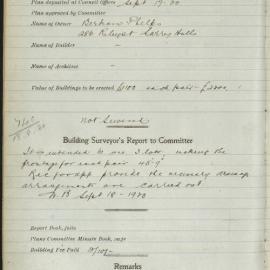 Plan deposited at Council Offices Sept 17. 20
Plan approved by Committee
Name of Owner Bertram Phelps
Surrey Hills
Name of Builder -
Name of Architect -
Value of Buildings to be erected
not Sewered
Building Surveyor's Report to Committee
It is intended to use 3 lots, making the
frontage for each pair 45'9"
Rec for app provided the necessary drainage
arrangements are carried out
Sept 18 - 1920
Report Book, folio
Plans Committee Minute Book, page
Building Fee Paid
Remarks